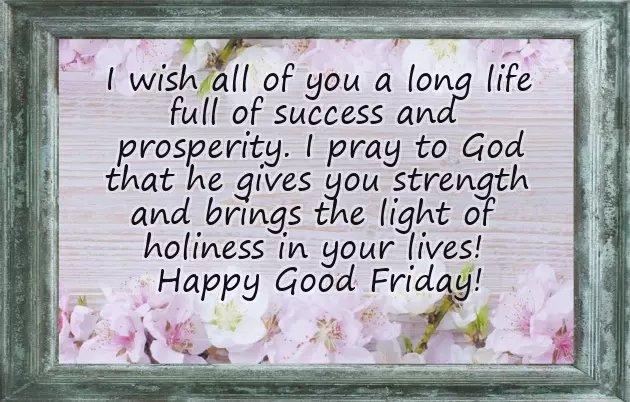 I wish all of you a long life
full of success and
prosperity. I pray to God
that he gives you strength
and brings the light of
holiness in your lives!
Happy Good Friday!